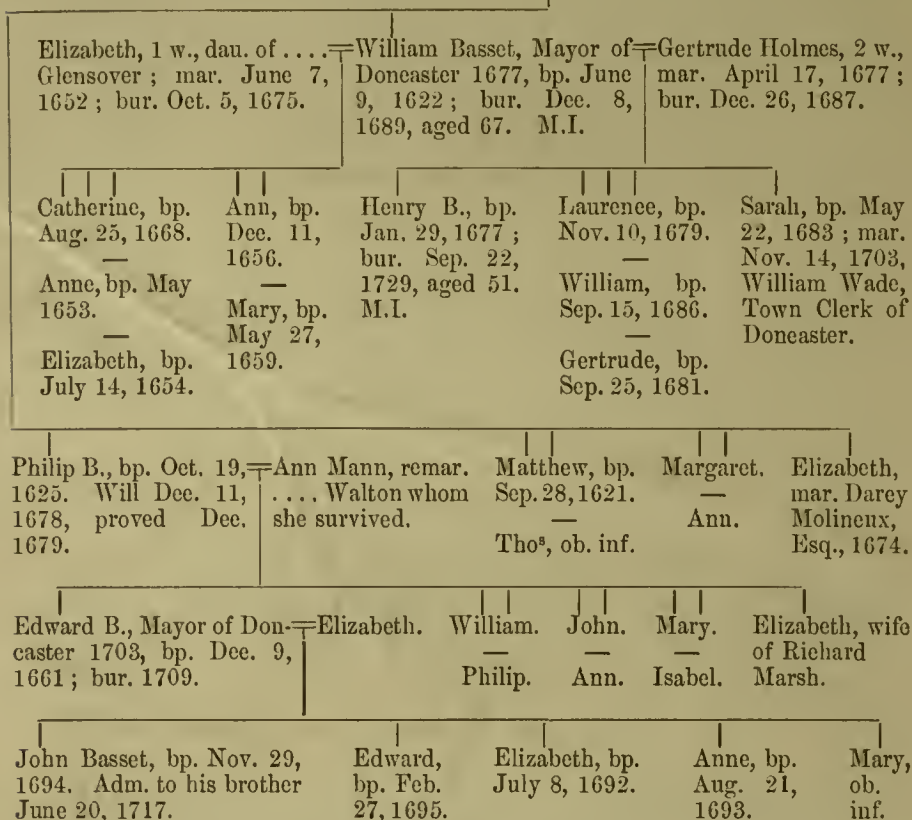 Elizabeth, 1 w., dau. of ....
Glensover ; mar. June 7,
1652 ; bur. Oct. 5, 1675.
William Basset, Mayor of
Doncaster 1677, bp. June
9, 1622 ; bur. Dec. 8,
1689, aged 67. M.I.
Gertrude Holmes, 2 w.,
mar. April 17, 1677 ;
bur. Dec. 26, 1687.
Catherine, bp.
Aug. 25, 1668.
—
Anne, bp. May
1653.
—
Elizabeth, bp.
July 14, 1654.
Ann, bp.
Dec. 11,
1656.
—
Mary, bp.
May 27,
1659.
Henry B., bp.
Jan. 29, 1677 ;
bur. Sep. 22,
1729, aged 51.
M.I.
Laurence, bp.
Nov. 10, 1679.
—
William, bp.
Sep. 15, 1686.
—
Gertrude, bp.
Sep. 25, 1681.
Sarah, bp. May
22, 1683 ; mar.
Nov. 14, 1703,
William Wade,
Town Clerk of
Doncaster.
Philip B., bp. Oct. 19,
1625. Will Dec. 11,
1678, proved Dec.
1679.
Ann Mann, remar.
.... Walton whom
she survived.
Matthew, bp.
Sep. 28, 1621.
—
Thoˢ, ob. inf.
Margaret.
—
Ann.
Elizabeth,
mar. Darcy
Molineux,
Esq., 1674.
Edward B., Mayor of Don-
caster 1703, bp. Dec. 9,
1661 ; bur. 1709.
Elizabeth.
William.
—
Philip.
John.
—
Ann.
Mary.
—
Isabel.
Elizabeth, wife
of Richard
Marsh.
John Basset, bp. Nov. 29,
1694. Adm. to his brother
June 20, 1717.
Edward,
bp. Feb.
27, 1695.
Elizabeth, bp.
July 8, 1692.
Anne, bp.
Aug. 21,
1693.
Mary,
ob.
inf.